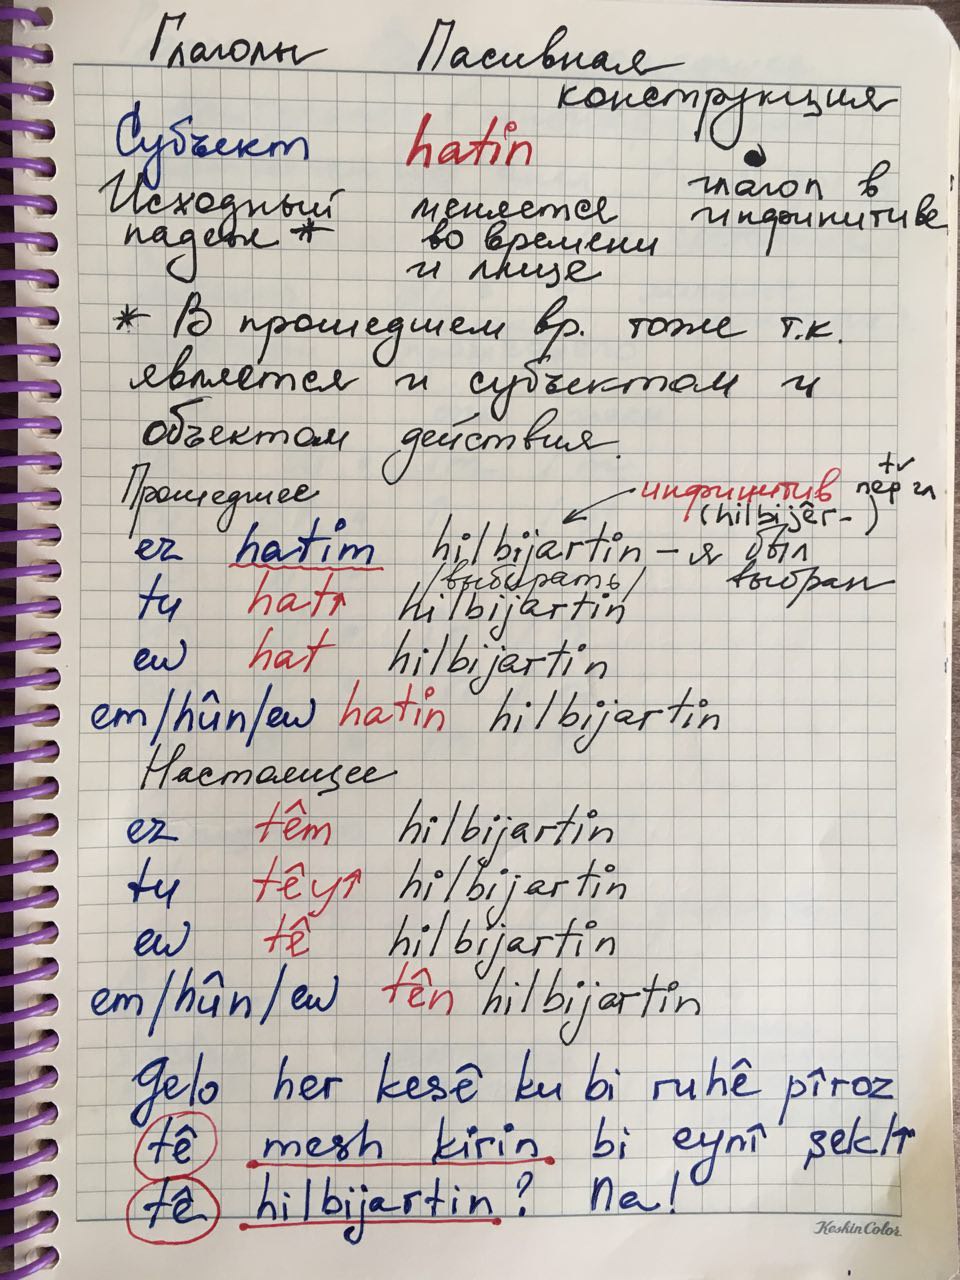 Глаголы Пасивная
конструкция
Субъект hatin
Исходный меняется глагол в
падеж * во времени инфинитиве
и лице
* В прошедшем вр. тоже т.к.
является и субъектом и
объектом действия.
Прошедшее инфинитив пер гл
(hilbijêr-)
ez hatim hilbijartin – я был
/выбирать/ выбран
tu hat↑ hilbijartin
ew hat hilbijartin
em/hûn/ew hatin hilbijartin
Настоящее
ez têm hilbijartin
tu têy↑ hilbijartin
ew tê hilbijartin
em/hûn/ew tên hilbijartin
Gelo her kesê ku bi ruhê pîroz
tê mesh kirin bi eynî şekl↑
tê hilbijartin? Na!
KeskinColor